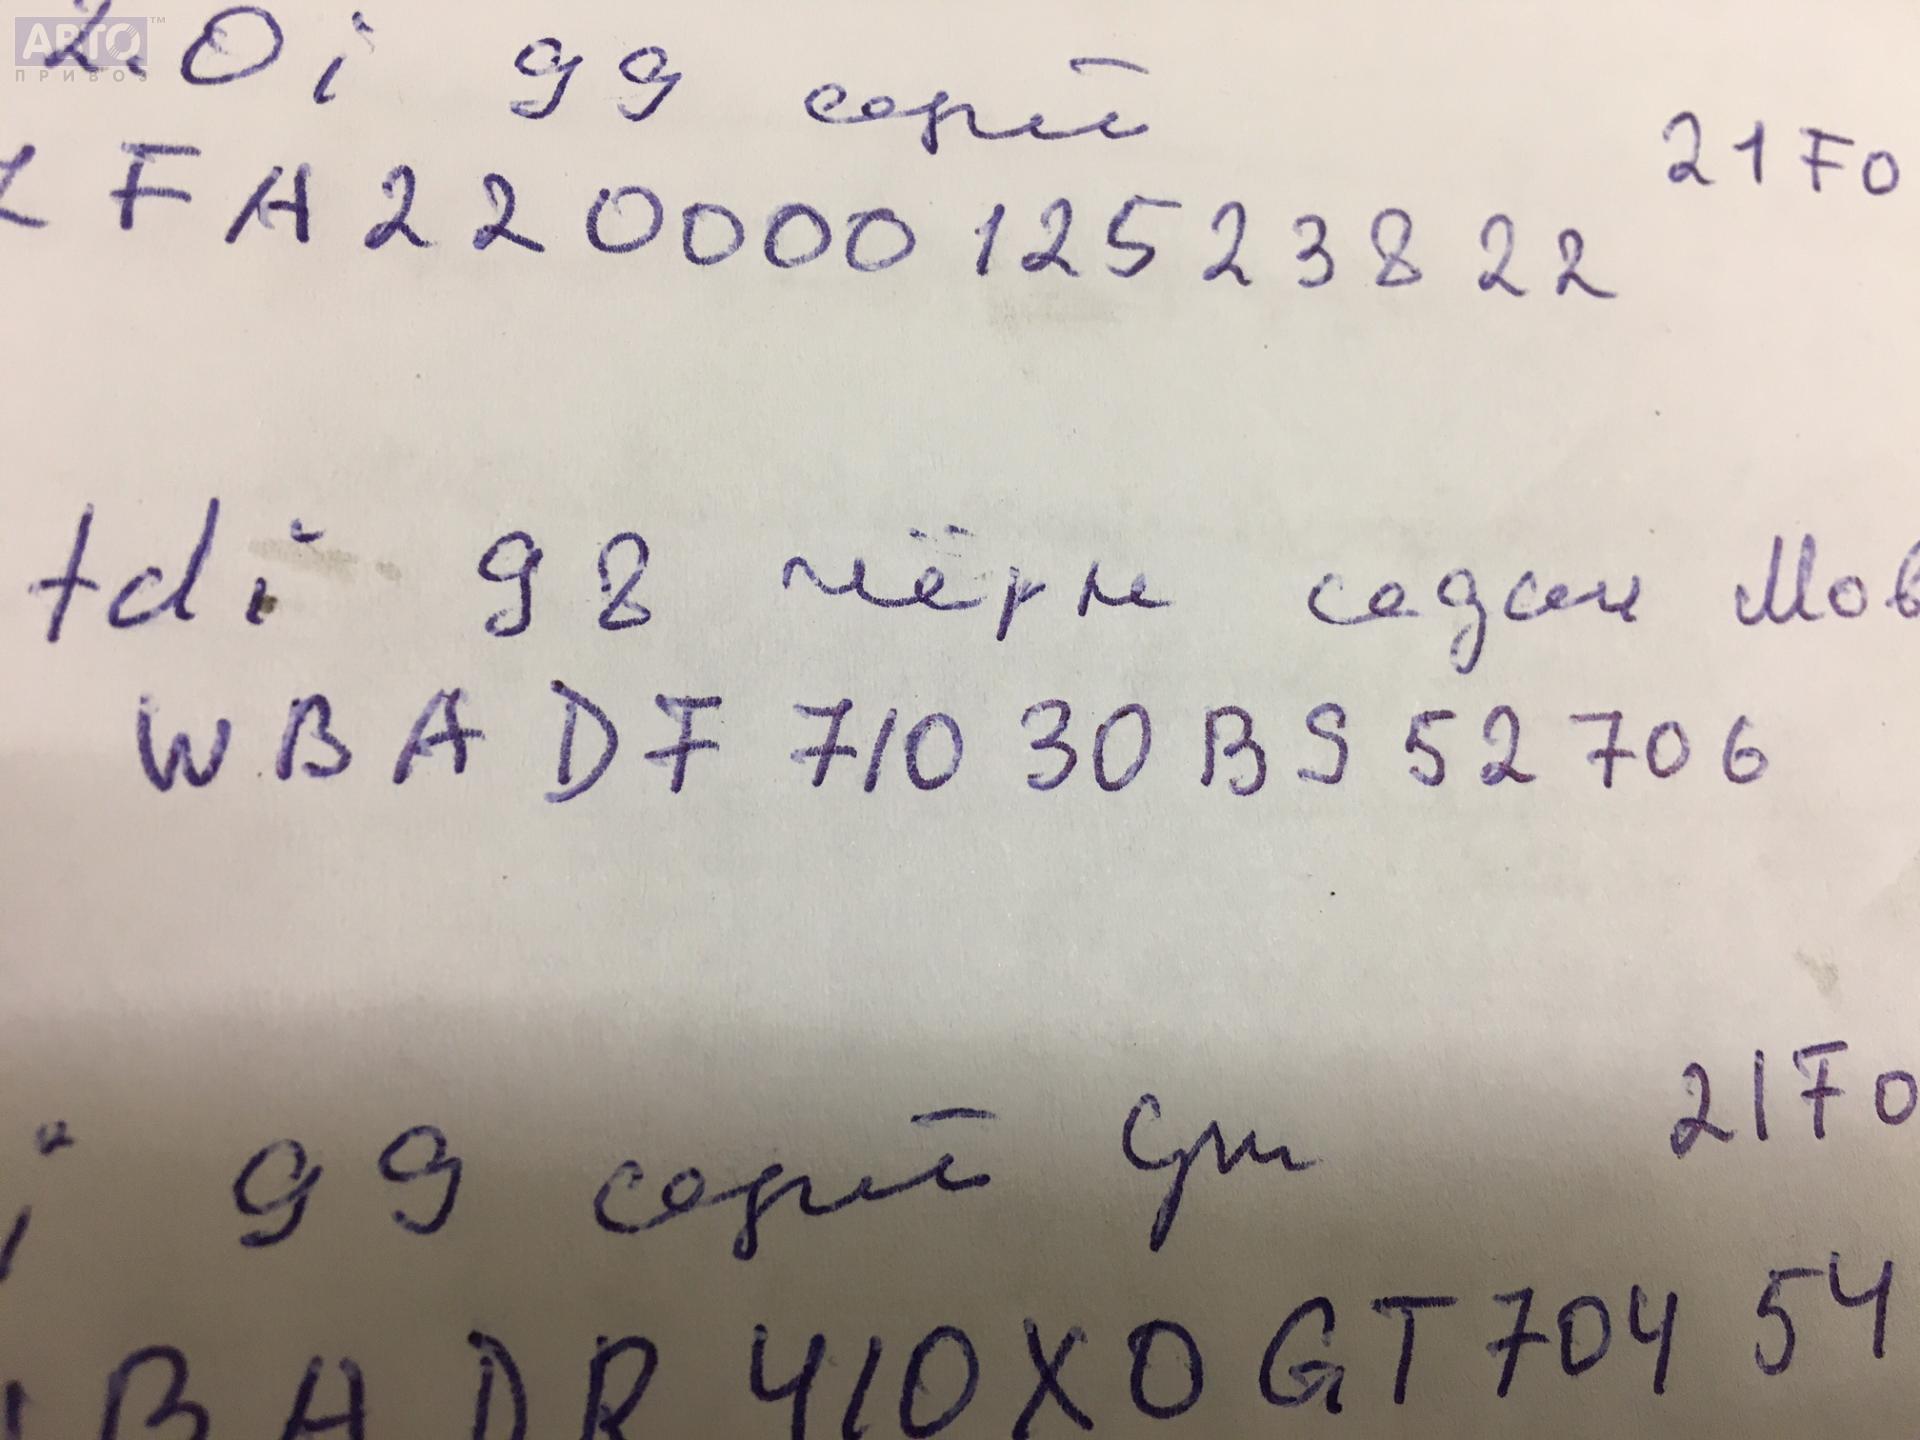 АВТО™
ПРИВОЗ
2.0i 99 серый
21F0
ZFA22000012523822
tdi 98 чёрн седан Мов
WBADF71030BS52706
i 99 серый
21F0
BADR410X0GT70454